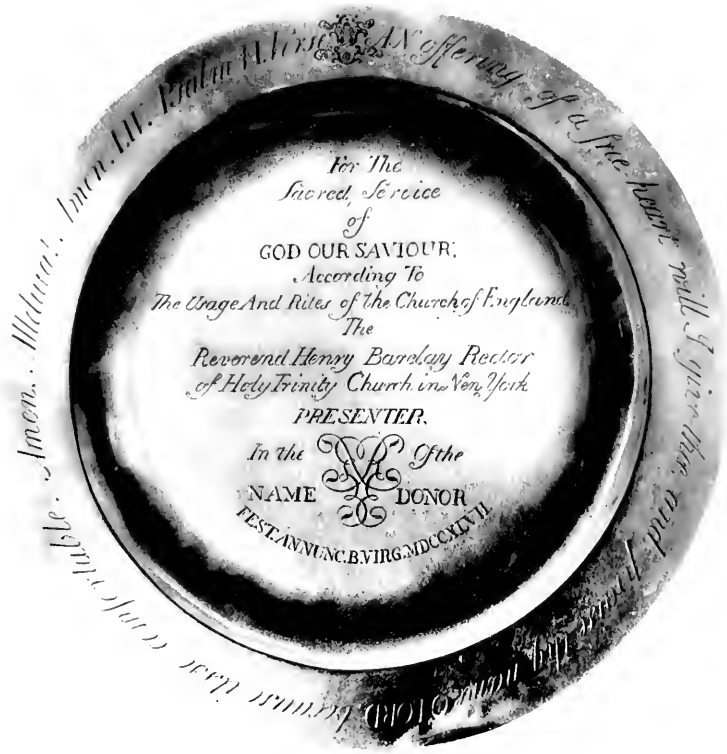 AN offering of a free heart will I give the and praise thy name O LORD, because comfortable. Amen. Amen. LIV. Psalm VI. Verse
For The
Sacred, Service
of
GOD OUR SAVIOUR;
According To
The Usage And Rites of the Church of England
The
Reverend Henry Barclay Rector
of Holy Trinity Church in New York
PRESENTER.
In the Of the
NAME DONOR
FEST.ANNUNC.B.VIRG.MDCCXLVII